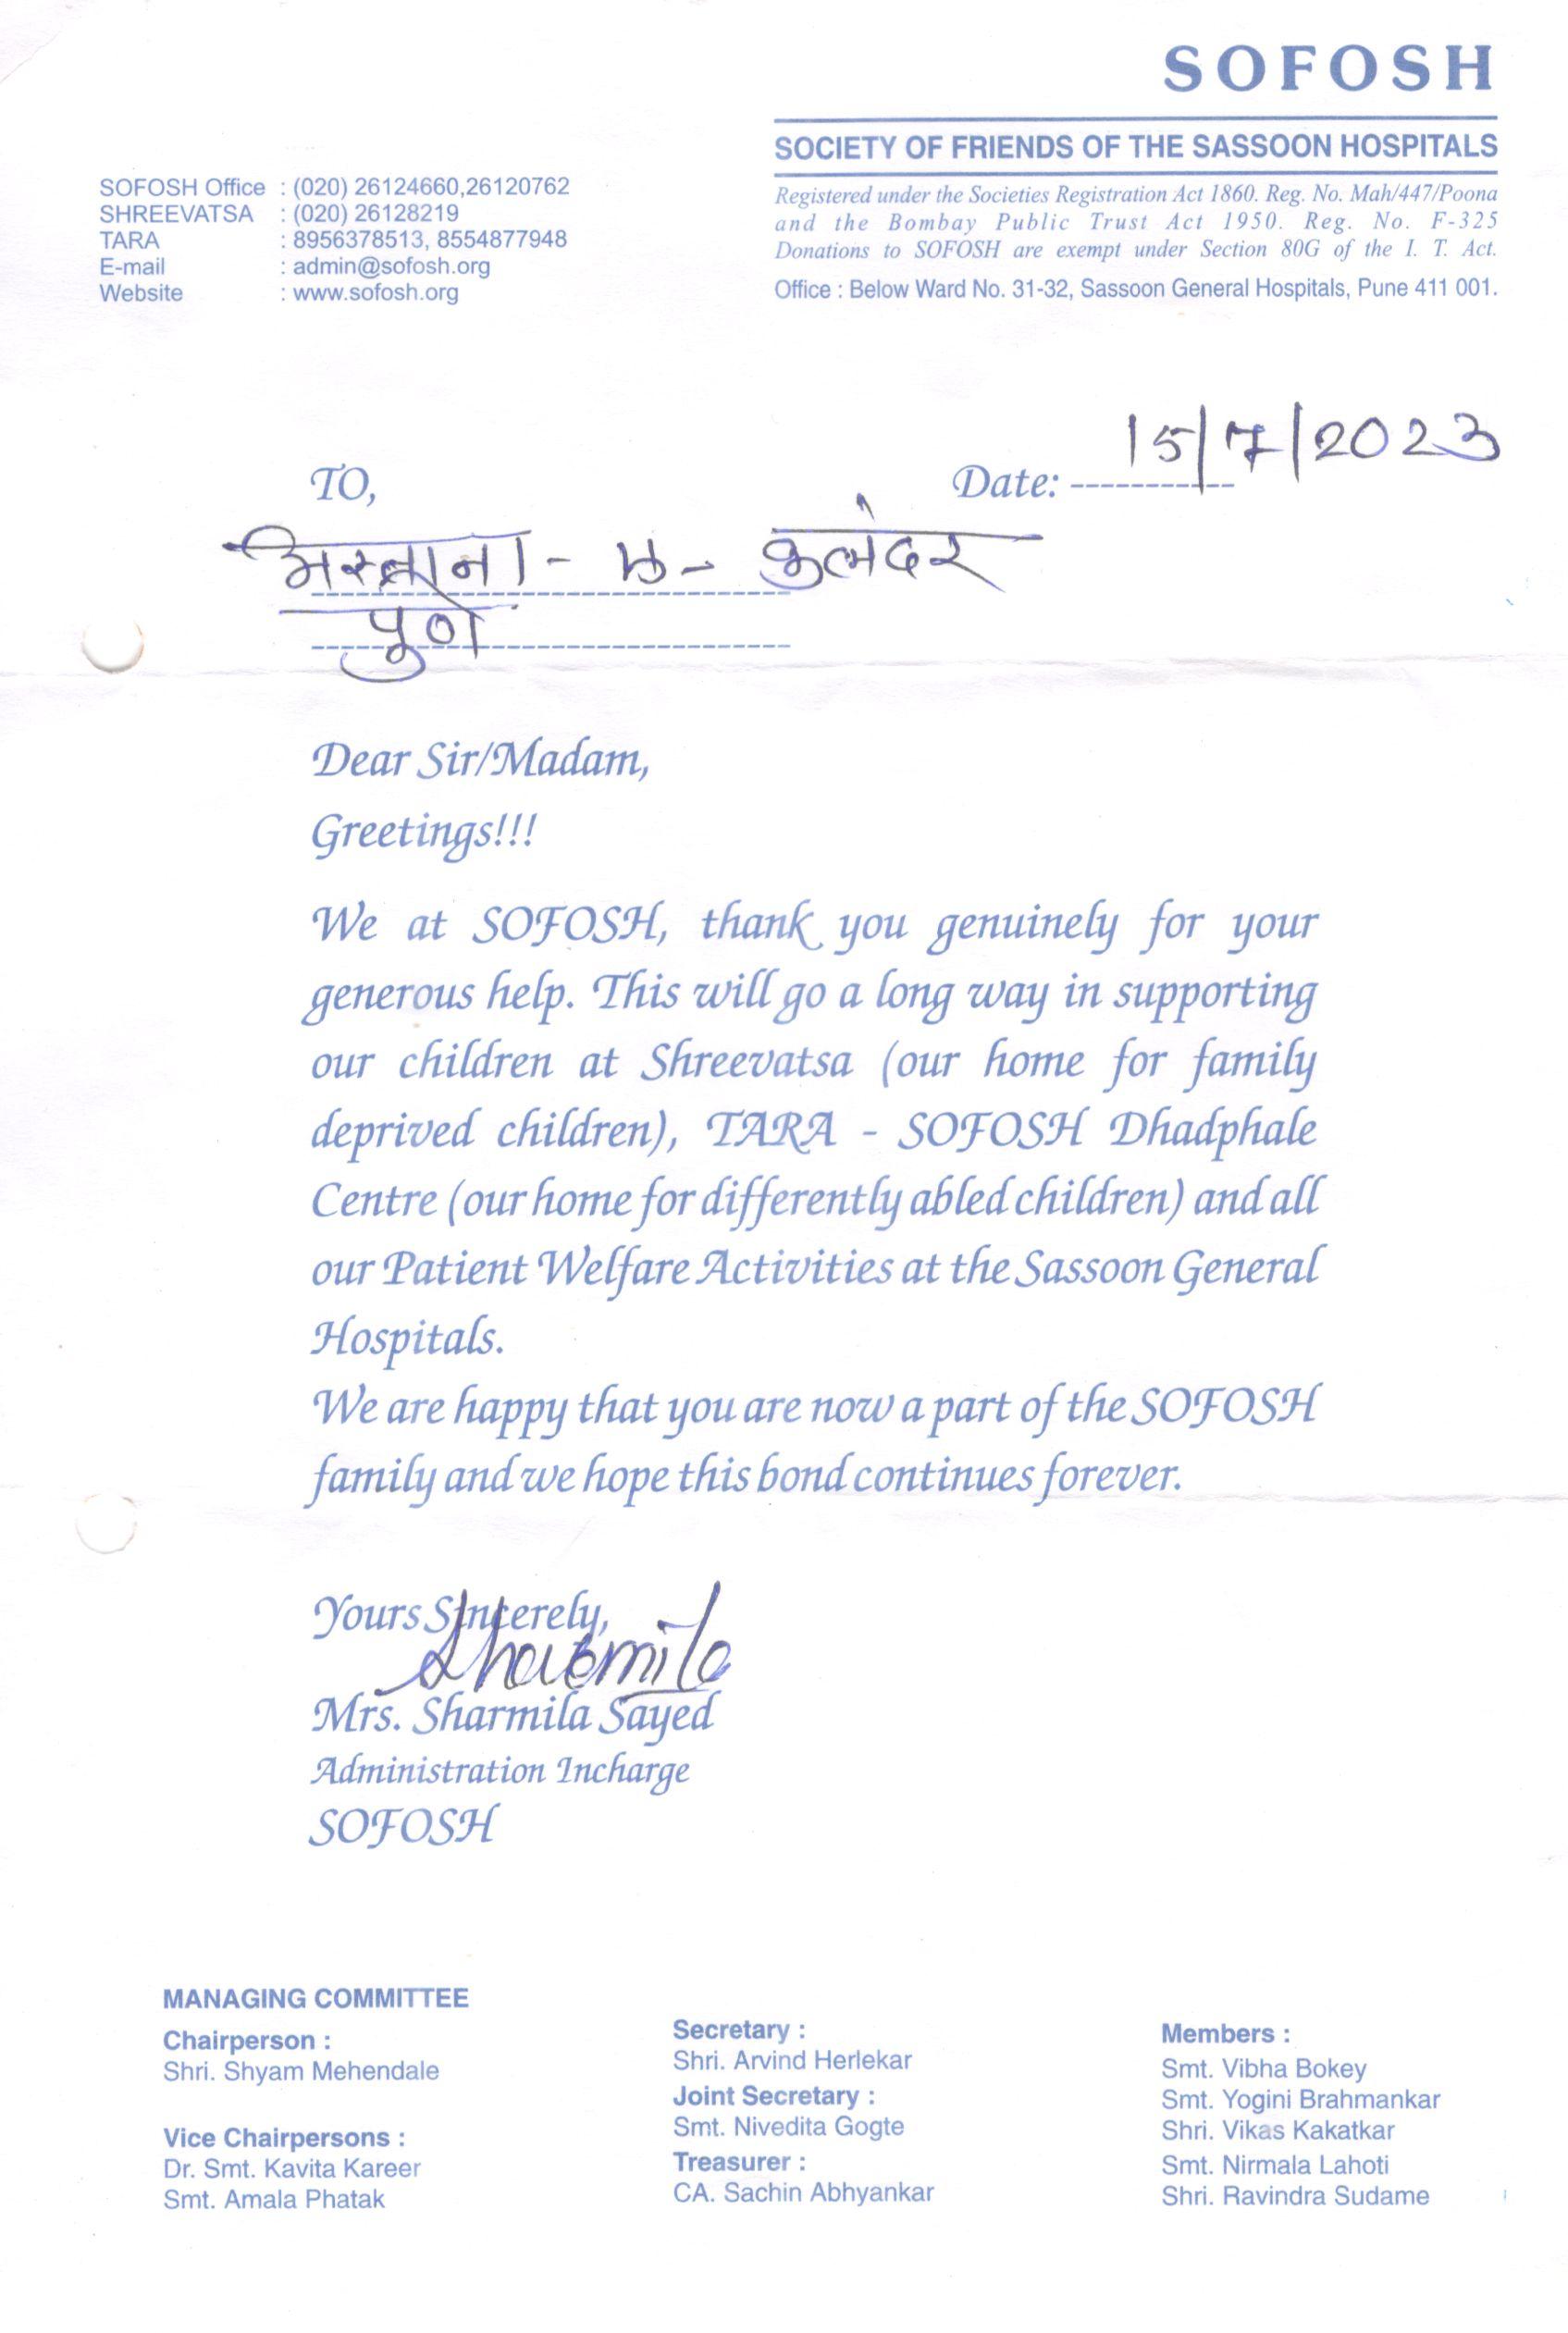 SOFOSH
SOCIETY OF FRIENDS OF THE SASSOON HOSPITALS
Registered under the Societies Registration Act 1860. Reg. No. Mah/447/Poona
and the Bombay Public Trust Act 1950. Reg. No. F-325
Donations to SOFOSH are exempt under Section 80G of the I. T. Act.
Office : Below Ward No. 31-32, Sassoon General Hospitals, Pune 411 001.
SOFOSH Office : (020) 26124660,26120762
SHREEVATSA : (020) 26128219
TARA : 8956378513, 8554877948
E-mail : admin@sofosh.org
Website : www.sofosh.org
Date: 15/7/2023
TO,
अस्ताना - ए - कलंदर
पुणे
Dear Sir/Madam,
Greetings!!!
We at SOFOSH, thank you genuinely for your
generous help. This will go a long way in supporting
our children at Shreevatsa (our home for family
deprived children), TARA - SOFOSH Dhadphale
Centre (our home for differently abled children) and all
our Patient Welfare Activities at the Sassoon General
Hospitals.
We are happy that you are now a part of the SOFOSH
family and we hope this bond continues forever.
Yours Sincerely,
Sharmila
Mrs. Sharmila Sayed
Administration Incharge
SOFOSH
MANAGING COMMITTEE
Chairperson :
Shri. Shyam Mehendale
Vice Chairpersons :
Dr. Smt. Kavita Kareer
Smt. Amala Phatak
Secretary :
Shri. Arvind Herlekar
Joint Secretary :
Smt. Nivedita Gogte
Treasurer :
CA. Sachin Abhyankar
Members :
Smt. Vibha Bokey
Smt. Yogini Brahmankar
Shri. Vikas Kakatkar
Smt. Nirmala Lahoti
Shri. Ravindra Sudame